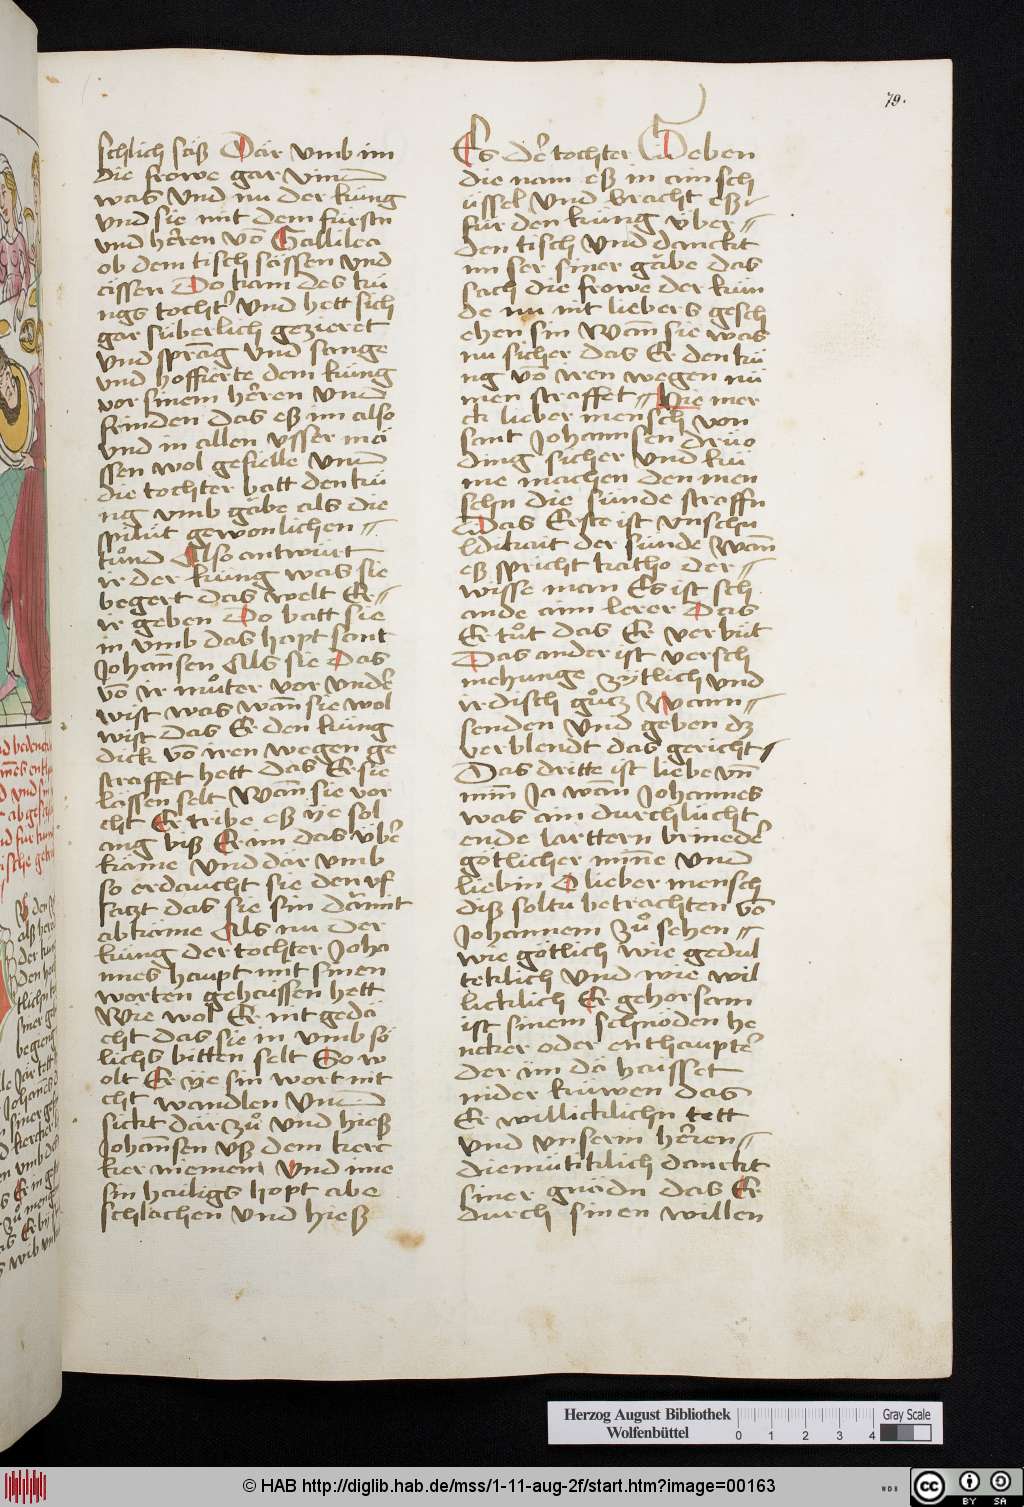 79.
schlich säß Där vmb im
die frowe gar vind
was vnd nu der küng
vnd sie mit dem fürstn
vnd h̄eren vō Gallilea
ob dem tisch sässen vnd
aissen Do kam des kü
ngs tocht̓ vnd hett sich
gar süberlich gezieret
vnd sprāg vnd sange
vnd hoffierte dem küng
vor sinem h̄eren vnd
frinden das eß im also
vnd in allen vsser mä
ssen wol gefielle vnd
die tochter batt den kü
ng vmb gäbe als die
spillüt gewonlichen
kůnd Also antwürt
ir der küng was sie
begert das welt Er
ir geben Do batt sie
in vmb das hapt sant
Johan̄sen Als sie Das
vō ir můter vor vnder̄
wist was wan̄ sie wol
wist das Er den küng
dick vō iren wegen ge
straffet hett das Er sie
lassen selt Wan̄ sie vor
cht Er tribe eß ye sol
ang biß Er im das vber̄
käme vnd där vmb
so erdaucht sie den vf
satzt das sie sin dāmit
abkäme Als nu der
küng der tochter Joha
nnes haupt mit sinen
worten gehaissen hett
Wie wol Er nit gedä
cht das sie in vmb sö
lichs bitten selt So w
olt Er ye sin wort nit
cht wandlen vnd
sickt där zů vnd hieß
Johan̄sen vß dem kerc
ker niemem vnd ime
sin hailigs hopt abe
schlachen vnd hieß
Es der̄ tochter Geben
die nam eß in ain sch
üssel vnd bracht eß
für den küng vber
den tisch vnd danckt
im ser siner gäbe das
sach die frowe der kün
de nu nit liebers gesch
ehen sin Wan̄ sie was
nu sicher das Er den kü
ng vō iren wegen nü
men straffet Hie mer
ck lieber mensch von
sant Johannsen drüo
ding sicher vnd kü
ne machen den men
schn die sünde straffn
Das Erste ist vnschu
ldikait der sünde Wan̄
eß spricht katho der
wisse man Es ist sch
ande aim lerer Das
Er tůt das Er verbüt
Das ander ist versch
mehunge zytlich vnd
irdisch gůcz Wann
senden vnd geben dz
verblendt das gericht
Das dritte ist liebe vn̄
min̄ Ja wan̄ Johannes
was ain durchlücht
ende larttern brineder̄
götlicher min̄e vnd
liebin O lieber mensch
diß soltu betrachten vō
Johannem Zů sehen
wie götlich wie gedul
teklich vnd wie wil
licklich Er gehorsam
ist sinem schnöden he
ncker oder enthaupter̄
der im dä haisset
nider küwen das
Er willicklichn tett
vnd vnserm h̄eren
diemütiklich danckt
siner gnädn das Er
durch sinen willen
Herzog August Bibliothek
Wolfenbüttel
0 1 2 3 4
Gray Scale
© HAB http://diglib.hab.de/mss/1-11-aug-2f/start.htm?image=00163
WDB
CC BY SA